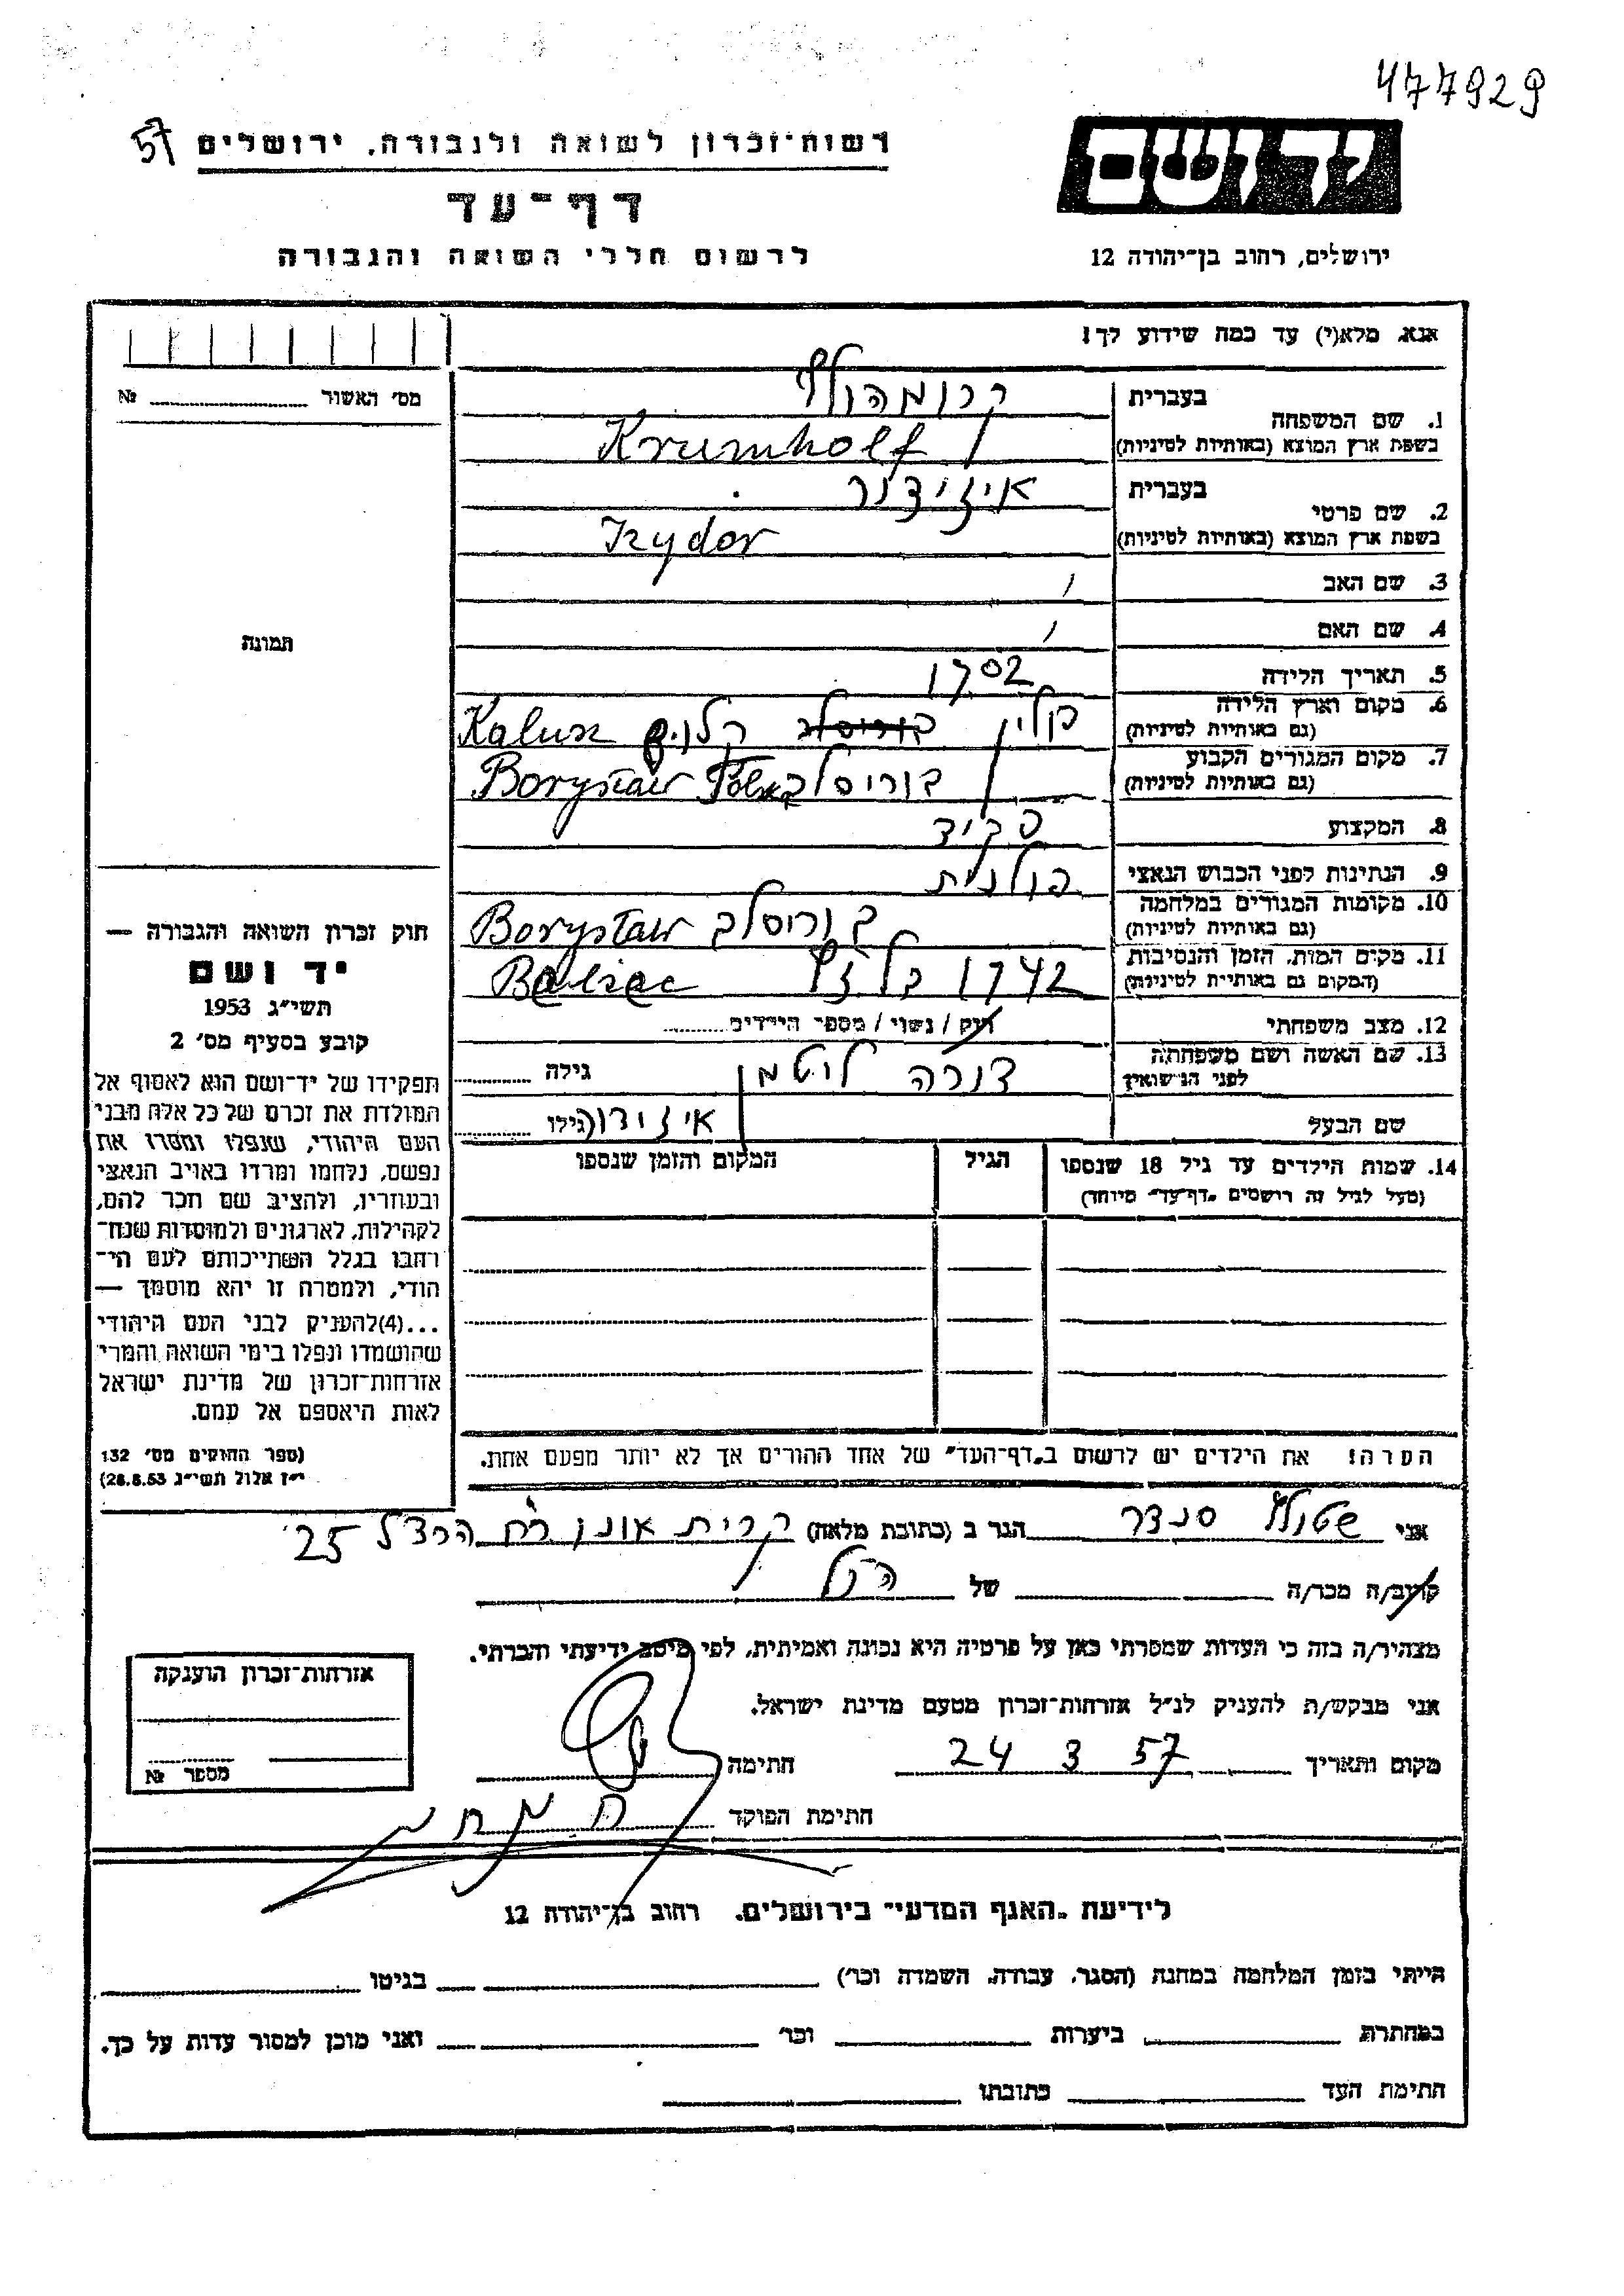 477929
57
רשות־זכרון לשואה ולגבורה, ירושלים
יד ושם
דף־עד
לרשום חללי השואה והגבורה
ירושלים, רחוב בן־יהודה 12
אנא, מלא(י) עד כמה שידוע לך!
מס׳ האשור № 
בעברית קרומהולץ
1. שם המשפחה
בשפת ארץ המוצא (באותיות לטיניות) Krumholf
בעברית איזידור
2. שם פרטי
בשפת ארץ המוצא (באותיות לטיניות) Izydor
3. שם האב
4. שם האם
תמונה
5. תאריך הלידה 1902
6. מקום וארץ הלידה
(גם באותיות לטיניות) פולין Kalusz
7. מקום המגורים הקבוע
(גם באותיות לטיניות) בוריסלב Borysław
8. המקצוע פקיד
9. הנתינות לפני הכבוש הנאצי פולנית
10. מקומות המגורים במלחמה
(גם באותיות לטיניות) בוריסלב Borysław
11. מקום המות, הזמן והנסיבות
(המקום גם באותיות לטיניות) 1942 בלזץ
12. מצב משפחתי רווק / נשוי / מספר הילדים
13. שם האשה ושם משפחתה
לפני הנישואין דורה ליטמן גילה
שם הבעל איזידור גילו
14. שמות הילדים עד גיל 18 שנספו
(מעל לגיל זה רושמים „דף־עד״ מיוחד)
הגיל
המקום והזמן שנספו
חוק זכרון השואה והגבורה —
יד ושם
תשי״ג 1953
קובע בסעיף מס׳ 2
תפקידו של יד־ושם הוא לאסוף אל
המולדת את זכרם של כל אלה מבני
העם היהודי, שנפלו ומסרו את
נפשם, נלחמו ומרדו באויב הנאצי
ובעוזריו, ולהציב שם וזכר להם,
לקהילות, לארגונים ולמוסדות שנח־
רבו בגלל השתייכותם לעם הי־
הודי, ולמטרה זו יהא מוסמך —
...(4) להעניק לבני העם היהודי
שהושמדו ונפלו בימי השואה והמרי
אזרחות־זכרון של מדינת ישראל
לאות היאספם אל עמם.
(ספר החוקים מס׳ 132
י״ז אלול תשי״ג 28.8.53)
הערה: את הילדים יש לרשום ב„דף־העד״ של אחד ההורים אך לא יותר מפעם אחת.
אני שטולץ סנדר הגר ב (כתובת מלאה) קרית אונו רח הרצל 25
קרוב/ה מכר/ה של הנ״ל
מצהיר/ה בזה כי העדות שמסרתי כאן על פרטיה היא נכונה ואמיתית, לפי מיטב ידיעתי והכרתי.
אני מבקש/ת להעניק לנ״ל אזרחות־זכרון מטעם מדינת ישראל.
מקום ותאריך 24 3 57 חתימה
חתימת הפוקד
אזרחות־זכרון הוענקה
מספר №
לידיעת „האגף המדעי״ בירושלים, רחוב בן־יהודה 12
הייתי בזמן המלחמה במחנה (הסגר, עבודה, השמדה וכו׳) בגיטו
במחתרת ביערות וכו׳ ואני מוכן למסור עדות על כך.
חתימת העד כתובתו